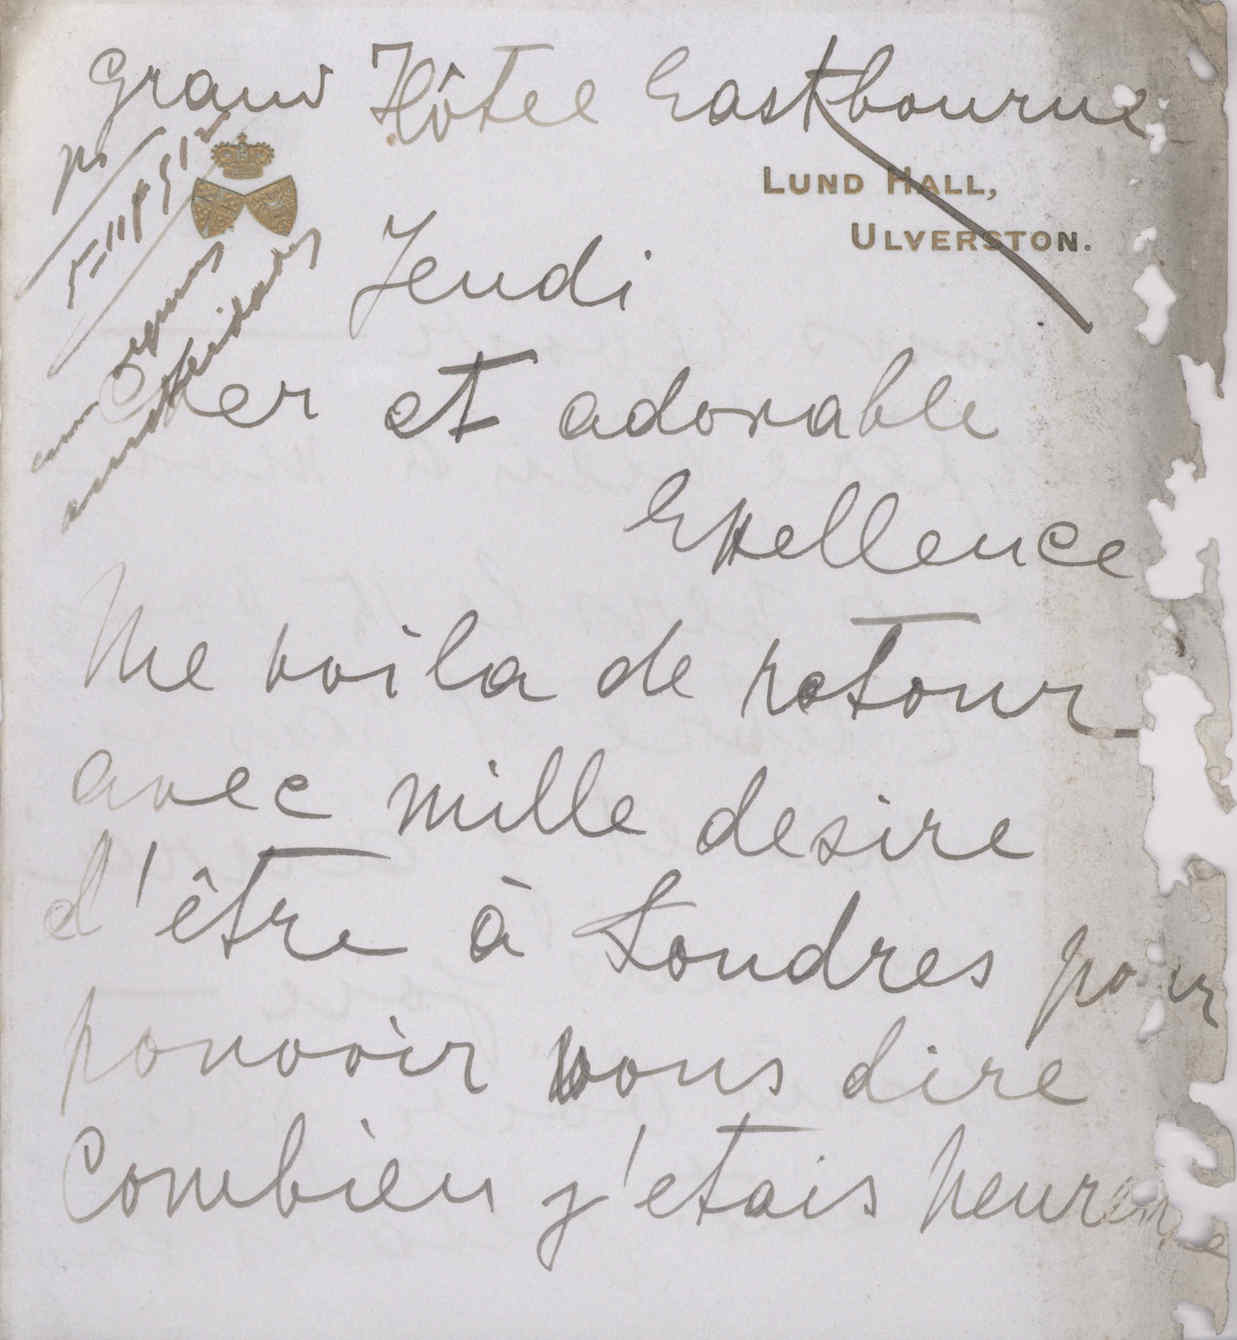 Grand Hôtel Eastbourne
LUND HALL,
ULVERSTON.
Jeudi
Cher et adorable
Exellence
Me voila de retour
avec mille desire
d'être à Londres pour
pouvoir vous dire
Combien j'etais heureuse